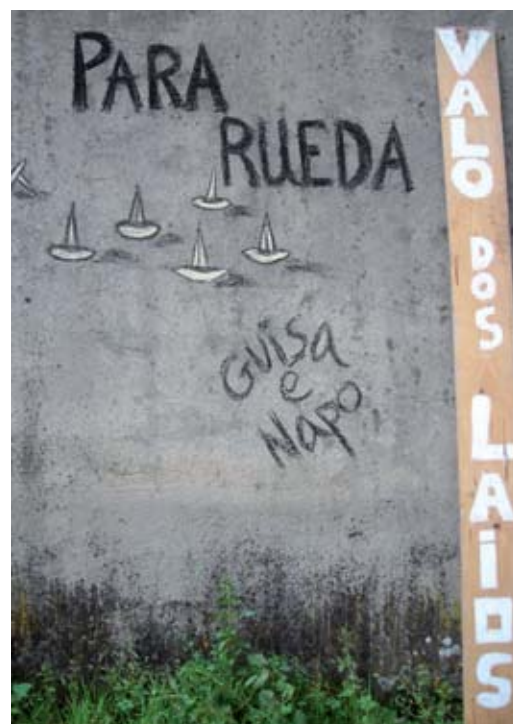 PARA
RUEDA
GUISa
e
Napo
VALO DOS LAIOS